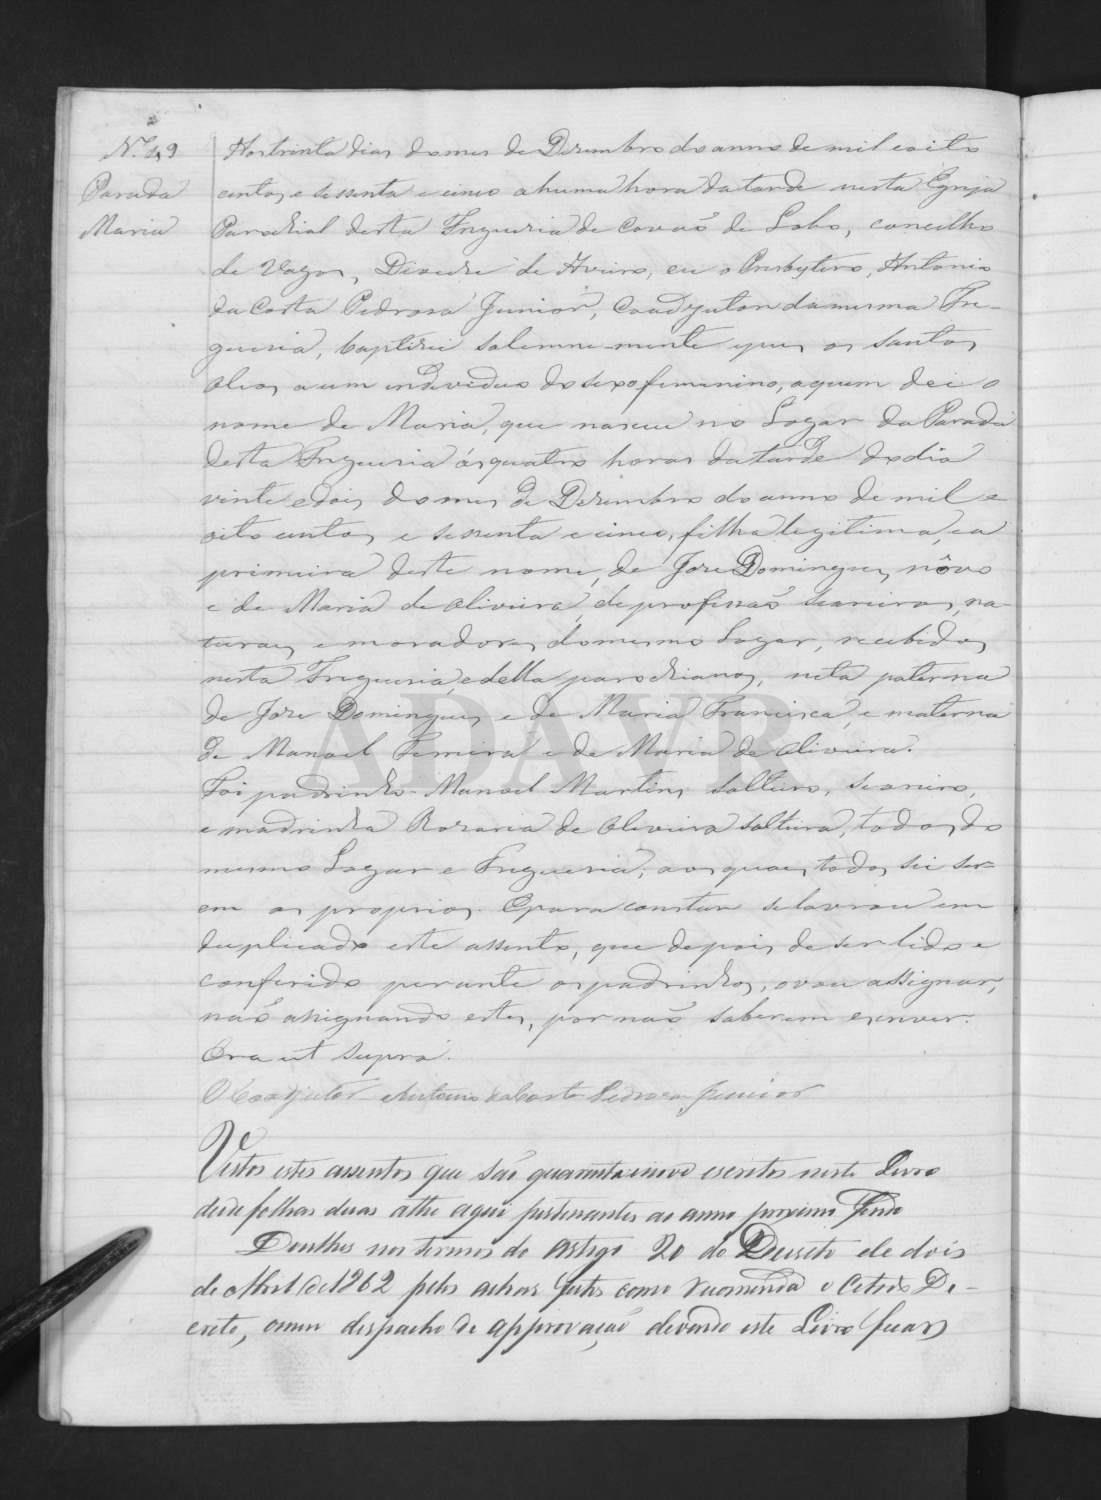 N.º 49
Parada
Maria
Aos trinta dias do mes de Dezembro do anno de mil e oito
centos e sessenta e cinco a huma hora da tarde nesta Egreja
Parochial desta Freguesia de Covaõ de Lobo, concelho
de Vagos, Diocese de Aveiro, eu o Presbytero, Antonio
da Costa Pedrosa Junior, Coadjutor da mesma Fre-
guesia, baptisei solemne-mente e puz os santos
oleos a um individuo do sexo femenino, a quem dei o
nome de Maria, que nasceu no Logar da Parada
desta Freguesia ás quatro horas da tarde do dia
vinte e dois do mes de Dezembro do anno de mil e
oito centos e sessenta e cinco, filha legitima, e a
primeira deste nome, de Jose Domingues nôvo
e de Maria de Oliveira, de profissaõ seareiros, na-
turaes e moradores do mesmo Logar, recebidos
nesta Freguesia, e della parochianos, neta paterna
de Jose Domingues e de Maria Francisca, e materna
de Manoel Ferreira e de Maria de Oliveira.
Foi padrinho Manoel Martins solteiro, seareiro,
e madrinha Rozaria de Oliveira solteira, todos do
mesmo Logar e Freguesia, aos quaes todos sei ser-
em os proprios. E para constar se lavrou em
duplicado este assento, que depois de ser lido e
conferido perante os padrinhos, o vou assignar,
naõ assignando estes, por naõ saberem escrever.
Era ut supra.
O Coadjutor Antonio da Costa Pedrosa Junior
Vistos estes assentos que são quarenta e nove escritos neste Livro
desde folhas duas athe aqui pertencentes ao anno proximo findo
Doulhes nos termos do artigo 20 do Decreto de dois
de Abril de 1862 pelos achar feitos como recomenda o citado De-
creto, o meu despacho de approvaçaõ devendo este Livro ficar
ADAVR